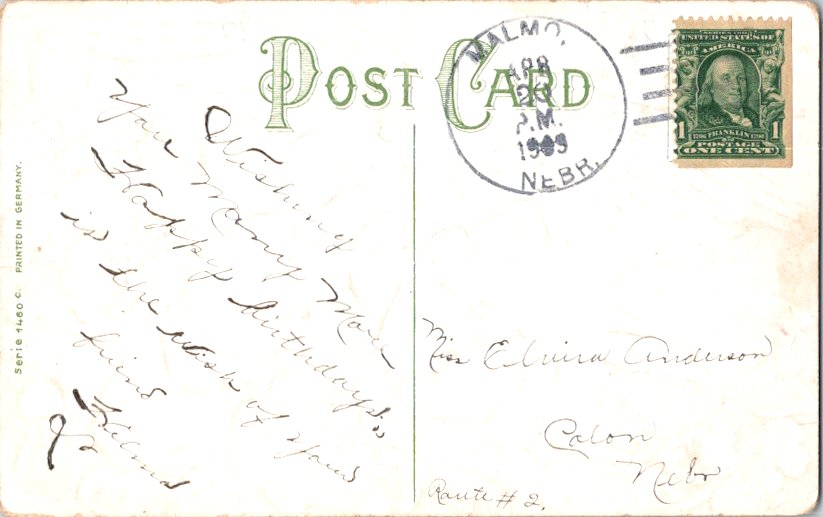 POST CARD
MALMO,
APR
23
P.M.
1909
NEBR.
SERIES 1902
UNITED STATES OF
AMERICA
1 1706 FRANKLIN 1790 1
POSTAGE
ONE CENT
Serie 1480 C. PRINTED IN GERMANY.
Wishing
You Many More
Happy birthdays
is the wish of your
friend
Hilma
Miss Elvira Anderson
Colon
Nebr
Route # 2.